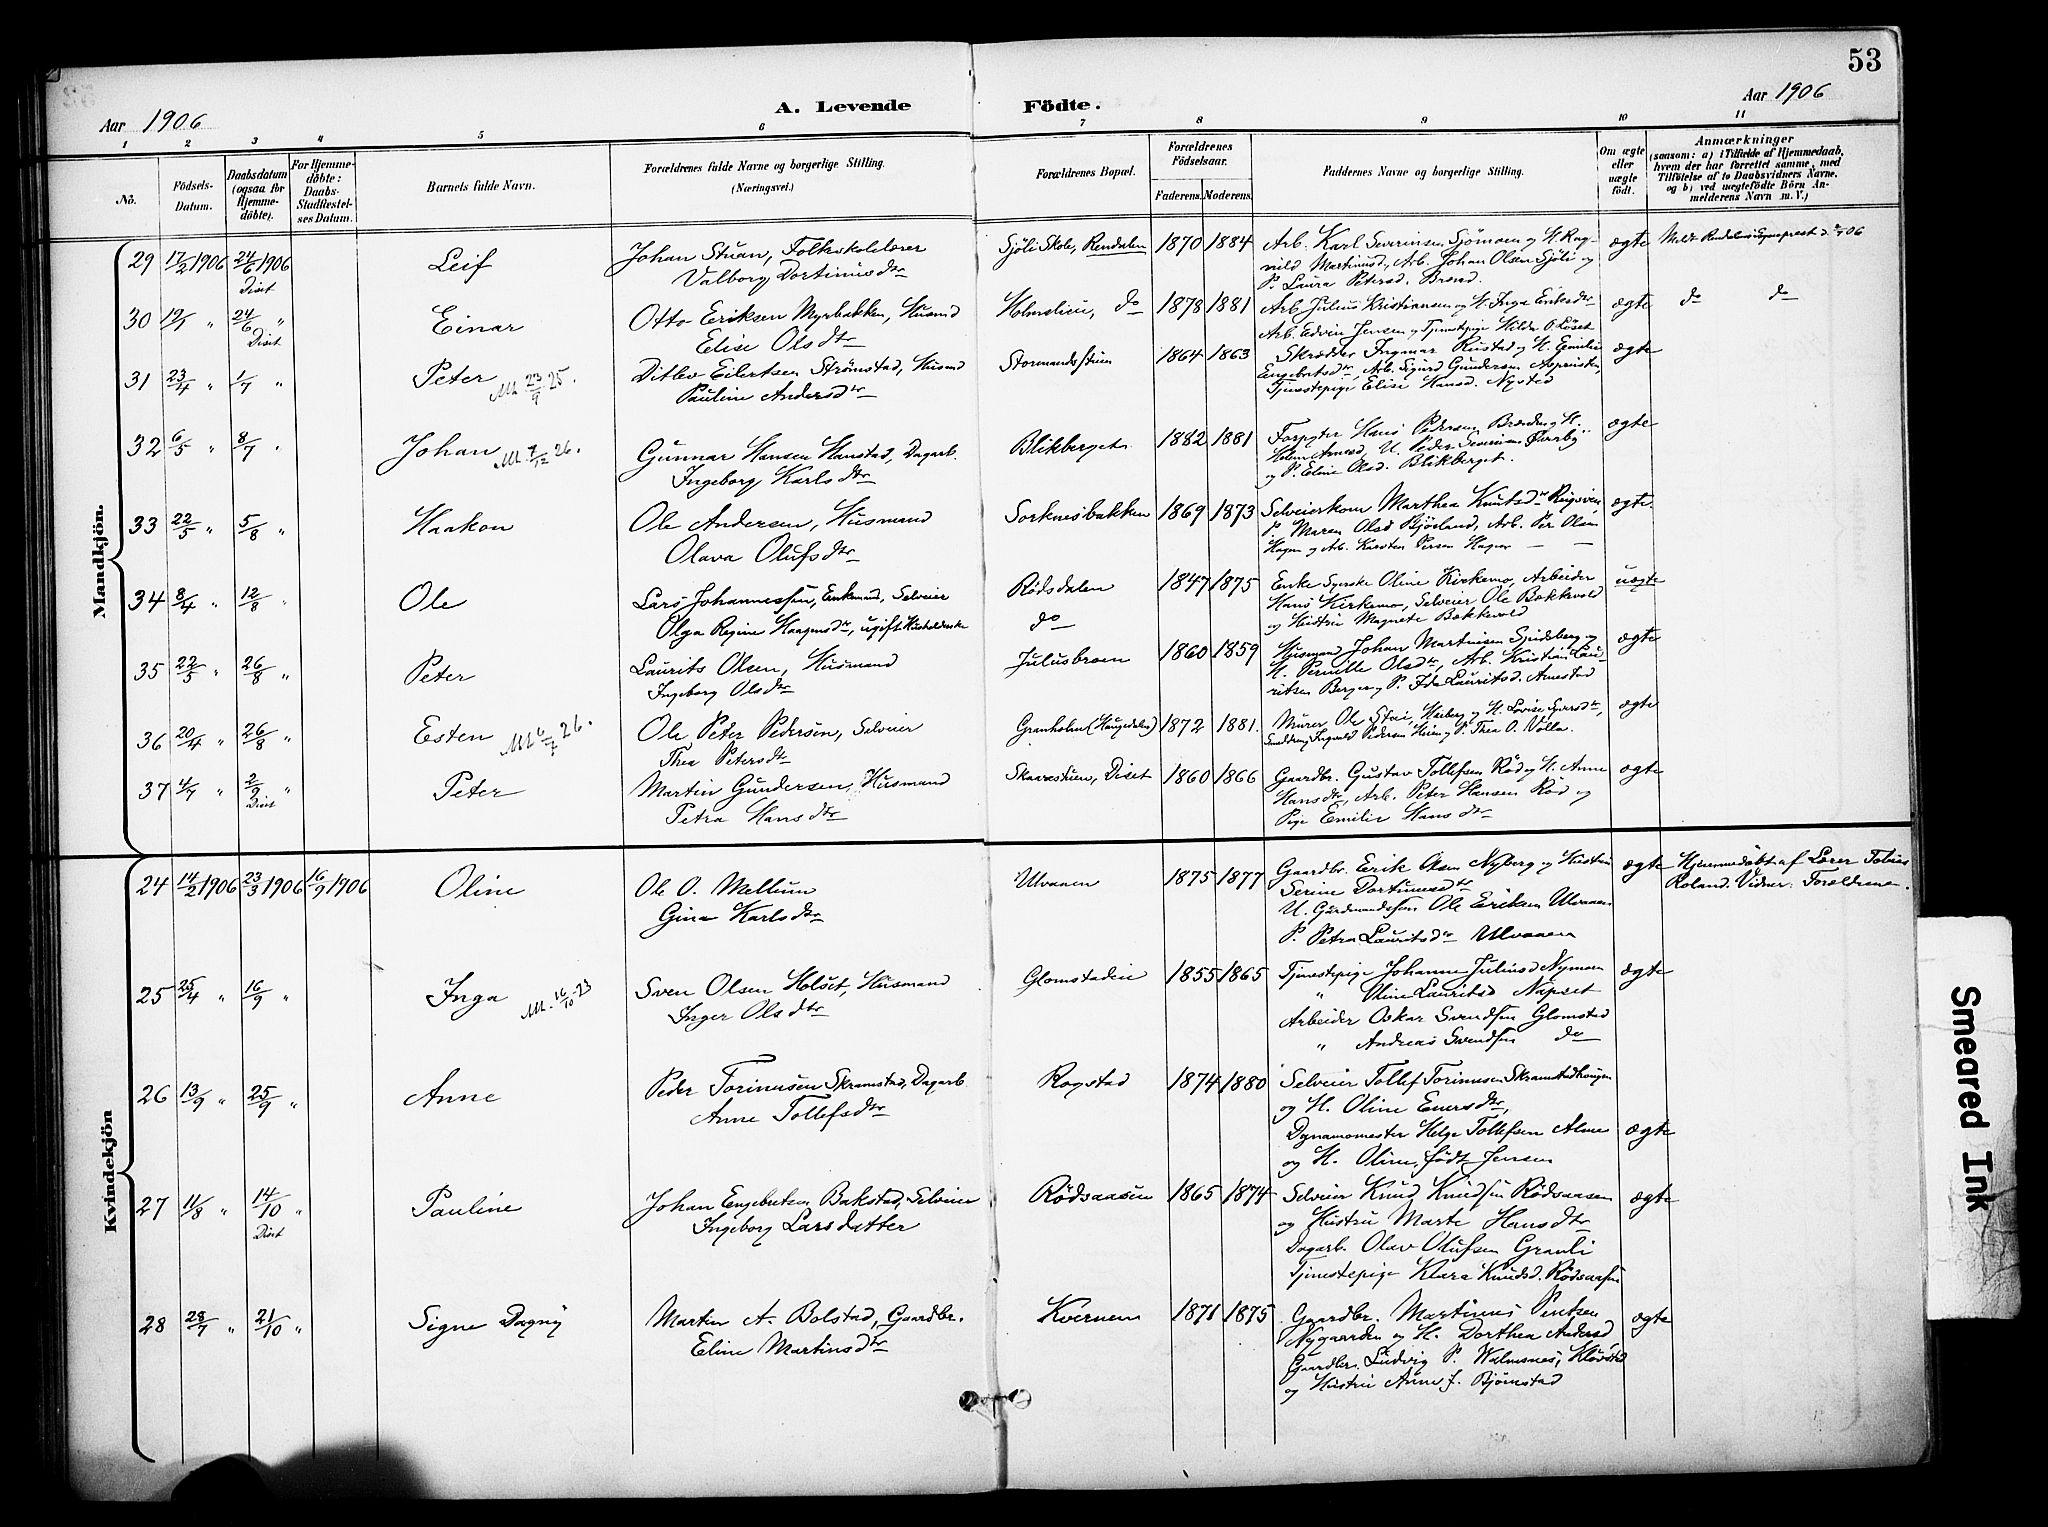 53
Aar 1906
A. Levende Födte.
Aar 1906
1 2 3 4 5 6 7 8 9 10 11
No.
Födsels-Datum.
Daabsdatum (ogsaa for Hjemme-döbte).
For Hjemme-döbte: Daabs-Stadfæstel-ses Datum.
Barnets fulde Navn.
Forældrenes fulde Navne og borgerlige Stilling.
(Næringsvei.)
Forældrenes Bopæl.
Forældrenes Födselsaar.
Faderens. Moderens.
Faddernes Navne og borgerlige Stilling.
Om ægte eller uægte födt.
Anmærkninger
(saasom: a) i Tilfælde af Hjemmedaab, hvem der har forrettet samme, med Tilföielse af to Daabsvidners Navne, og b) ved uægtefödte Börn Anmelderens Navn m. V.)
Mandkjön.
29 17/2 1906 24/6 1906 Diset Leif
Johan Stuan, Folkeskolelærer
Valborg Dortinusdtr
Sjöli Skole, Rendalen 1870 1884
Arb. Karl Severinsen Sjömoen og H. Rag-
nild Martinusd., Arb. Johan Olsen Sjöli og
P. Laura Petersd.
ægte
30 12/1 " 24/6 " Diset Einar
Otto Eriksen Myrbakken, Husmd
Elise Olsdtr
Holmslien, do 1878 1881
Arb. Julius Kristiansen og H. Inga
Arb. Edvin Jensen og Tjenestepige Hilda O. Löset
ægte do do
31 23/4 " 1/7 " Peter M. 23/9 25.
Ditlev Eilertsen Strömstad, Husmd
Pauline Andersdtr
Stormandsstuen 1864 1863
Skrædder Ingvar Rustad og H. Emilie
Engebretsdtr, Arb. Sigurd Gundersen
Tjenestepige Elise Hansd. Nysted
ægte
32 6/5 " 8/7 " Johan M. 7/12 26.
Gunnar Hansen Hanstad, Dagarb.
Ingeborg Karlsdtr
Blikberget 1882 1881
Forpagter Hans Pedersen Brænden og H.
og P. Eline Olsd. Blikberget.
ægte
33 22/5 " 5/8 " Haakon
Ole Andersen, Husmand
Olava Olufsdtr
Sorknesbakken 1869 1873
Selveierkone Marthea Knutsdtr
P. Maren Olsd Björland, Arb. Per Olsen
Hagen og Arb. Karsten Persen Hagen
ægte.
34 8/4 " 12/8 " Ole
Lars Johannessen, Enkemand, Selveier
Olga Regine Haagensdtr, ugift Husholderske
Rödsdalen 1847 1875
do
Enke Syerske Oline Kirkemo, Arbeider
Hans Kirkemo, Selveier Ole Bakkevold
og Hustru Magnete Bakkevold
uægte
35 22/5 " 26/8 " Peter
Laurits Olsen, Husmand
Ingeborg Olsdtr
Julusbroen 1860 1859
Husmand Johan Martinsen og
H. Pernille Olsdtr, Arb. Kristian Lau-
ritsen Berger og P. Ida Lauritsd. Arnestad
ægte
36 20/4 " 26/8 " Esten M 6/7 26.
Ole Peter Pedersen, Selveier
Thea Petersdtr
Granholen (Haugedalen) 1872 1881.
Murer Ole Stai, Harberg og H. Lovise
Ingvald Pedersen Heien og P. Thea O. Volla.
ægte
37 4/7 " 2/9 " Diset Peter
Martin Gundersen, Husmand
Petra Hansdtr
Skarastuen, Diset 1860 1866
Gaardbr. Gustav Tollefsen Röd og H. Anne
Hansdtr, Arb. Peter Hansen Röd og
Pige Emilie Hansdtr
ægte
Kvindekjön
24 14/2 1906 23/3 1906 16/9 1906 Oline
Ole O. Mellum
Gina Karlsdtr
Ulvaaen 1875 1877
Gaardbr. Erik Olsen Nyberg og Hustru
Serine Dortinusdtr
U. Gaardmandssön Ole Eriksen Ulvaaen
P. Petra Lauritsdtr Ulvaaen
ægte
Hjemmedöbt af Lærer Tobias
Roland. Vidner: Forældrene.
25 25/4 " 16/9 " Inga M. 16/10 23
Sven Olsen Holset, Husmand
Inger Olsdtr
Glomstadeie 1855 1865
Tjenestepige Johanne Juliusd Nymoen
" Oline Lauritsd Napset
Arbeider Oskar Svendsen Glomstad
" Andreas Svendsen do
ægte
26 13/9 " 25/9 " Anne
Peder Torinusen Skramstad, Dagarb.
Anne Tollefsdtr
Rogstad 1874 1880
Selveier Tollef Torinusen Skramstadhaugen
og H. Oline Enersdtr,
Dynamomester Helge Tollefsen Alme
og H. Oline, födt Jensen
ægte
27 11/8 " 14/10 " Diset Pauline
Johan Engebretsen Bakstad, Selveier
Ingeborg Larsdatter
Rödsaasen 1865 1874
Selveier Knud Knudsen Rödsaasen
og Hustru Marte Hansdtr
Dagarb. Olav Olufsen Granli
Tjenestepige Klara Knudsd. Rödsaasen
ægte
28 28/7 " 21/10 " Signe Dagny
Martin A. Bolstad, Gaardbr.
Eline Martinsdtr
Kvernen 1871 1875
Gaardbr. Martinus Pentsen
Nygaarden og H. Dorthea Andersd
Gaardbr. Ludvig P. Walmsnes, Klövstad
og Hustru Anne f. Bjömstad
ægte
Smeared Ink